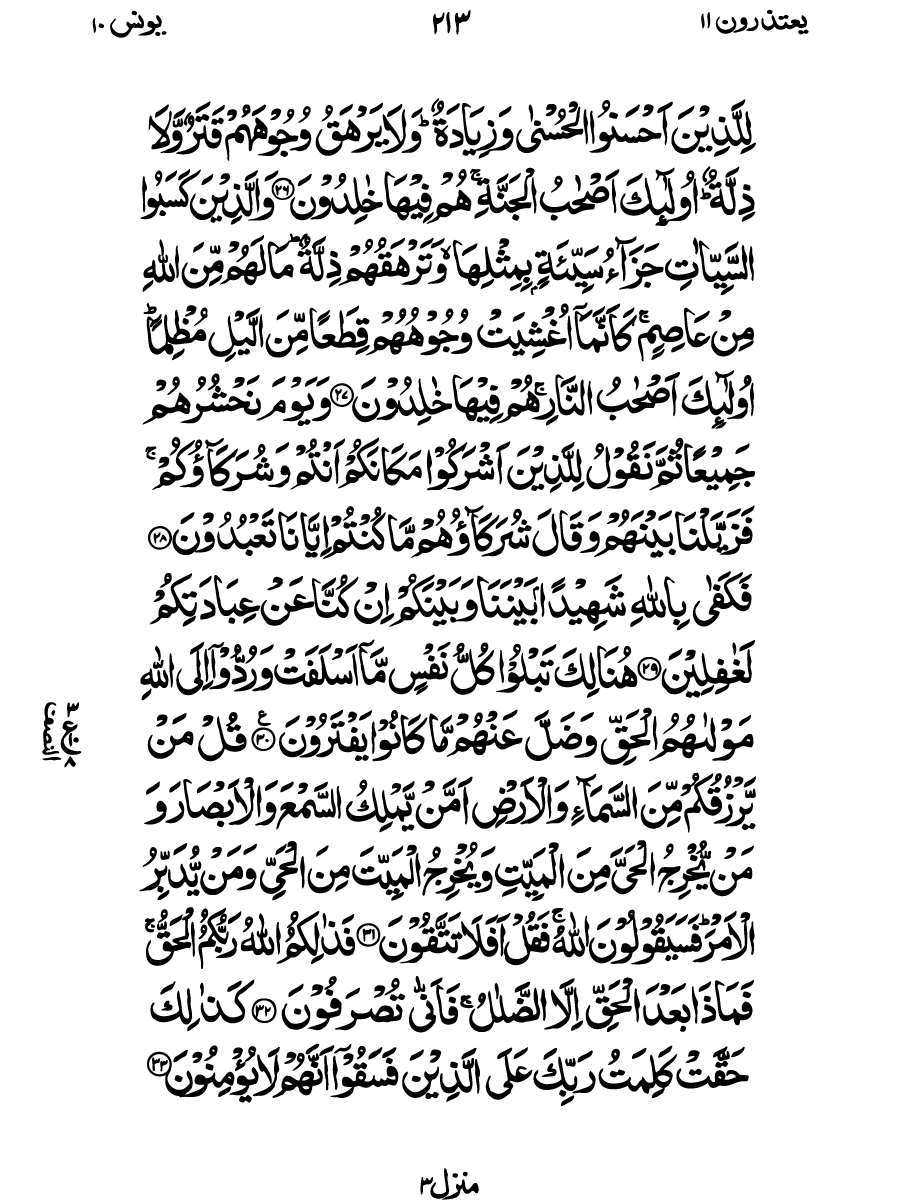 یعتذرون ۱۱ ۲۱۳ یونس ۱۰
لِلَّذِیْنَ اَحْسَنُوا الْحُسْنٰی وَزِیَادَةٌ ؕ وَلَا یَرْهَقُ وُجُوْهَهُمْ قَتَرٌ وَّلَا
ذِلَّةٌ ؕ اُولٰٓىِٕكَ اَصْحٰبُ الْجَنَّةِ ۚ هُمْ فِیْهَا خٰلِدُوْنَ ﴿۲۶﴾ وَالَّذِیْنَ كَسَبُوا
السَّیِّاٰتِ جَزَآءُ سَیِّئَةٍۭ بِمِثْلِهَا ۙ وَتَرْهَقُهُمْ ذِلَّةٌ ؕ مَا لَهُمْ مِّنَ اللهِ
مِنْ عَاصِمٍ ۚ كَاَنَّمَاۤ اُغْشِیَتْ وُجُوْهُهُمْ قِطَعًا مِّنَ الَّیْلِ مُظْلِمًا ؕ
اُولٰٓىِٕكَ اَصْحٰبُ النَّارِ ۚ هُمْ فِیْهَا خٰلِدُوْنَ ﴿۲۷﴾ وَیَوْمَ نَحْشُرُهُمْ
جَمِیْعًا ثُمَّ نَقُوْلُ لِلَّذِیْنَ اَشْرَكُوْا مَكَانَكُمْ اَنْتُمْ وَشُرَكَآؤُكُمْ ۚ
فَزَیَّلْنَا بَیْنَهُمْ وَقَالَ شُرَكَآؤُهُمْ مَّا كُنْتُمْ اِیَّانَا تَعْبُدُوْنَ ﴿۲۸﴾
فَكَفٰی بِاللهِ شَهِیْدًۢا بَیْنَنَا وَبَیْنَكُمْ اِنْ كُنَّا عَنْ عِبَادَتِكُمْ
لَغٰفِلِیْنَ ﴿۲۹﴾ هُنَالِكَ تَبْلُوْا كُلُّ نَفْسٍ مَّاۤ اَسْلَفَتْ وَرُدُّوْۤا اِلَی اللهِ
مَوْلٰىهُمُ الْحَقِّ وَضَلَّ عَنْهُمْ مَّا كَانُوْا یَفْتَرُوْنَ ﴿۳۰﴾ قُلْ مَنْ
یَّرْزُقُكُمْ مِّنَ السَّمَآءِ وَالْاَرْضِ اَمَّنْ یَّمْلِكُ السَّمْعَ وَالْاَبْصَارَ وَ
مَنْ یُّخْرِجُ الْحَیَّ مِنَ الْمَیِّتِ وَیُخْرِجُ الْمَیِّتَ مِنَ الْحَیِّ وَمَنْ یُّدَبِّرُ
الْاَمْرَ ؕ فَسَیَقُوْلُوْنَ اللهُ ۚ فَقُلْ اَفَلَا تَتَّقُوْنَ ﴿۳۱﴾ فَذٰلِكُمُ اللهُ رَبُّكُمُ الْحَقُّ ۚ
فَمَاذَا بَعْدَ الْحَقِّ اِلَّا الضَّلٰلُ ۚ فَاَنّٰی تُصْرَفُوْنَ ﴿۳۲﴾ كَذٰلِكَ
حَقَّتْ كَلِمَتُ رَبِّكَ عَلَی الَّذِیْنَ فَسَقُوْۤا اَنَّهُمْ لَا یُؤْمِنُوْنَ ﴿۳۳﴾
منزل ۳